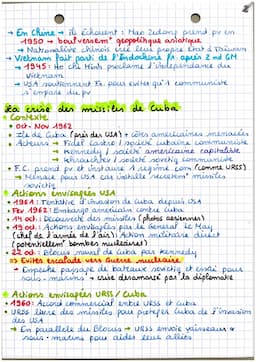 → En Chine → ils échouent : Mao Zedong prend pv en
1950 → boulversemt géopolitique asiatique
→ Nationaliste chinois crée leur propre Etat à Taiwan
→ Vietnam fait parti de l'Indochine fr. après 2nd GM
→ 1945 : Ho Chi Minh proclame l'indépendance du
Vietnam
→ USA soutiennent fr. pour éviter qu'1 communiste
s'empare du pv
La crise des missiles de Cuba
Contexte
Oct - Nov 1962
Île de Cuba (près des USA) → côtes américaines menacées
Acteurs → Fidel Castro / société cubaine communiste
→ Kennedy / société américaine capitaliste
→ Khrouchtev / société soviétiq communiste
F.C. prend pv et instaure 1 régime com (comme URSS)
→ Menace pour USA car installe "récemmt" missiles
soviétiq
Actions envisagées USA
1961 : Tentative d'invasion de Cuba depuis USA
Fev. 1962 : Embargo américain contre Cuba
14 oct : Découverte des missiles (photos aériennes)
19 oct : Actions envisagées par le Général Le May
(chef de l'armée de l'air) : Action militaire direct
(potentiellemt bombes nucléaires)
22 oct : Blocus naval de Cuba par Kennedy
⇒ Evites escalade vers Guerre nucléaire
→ Empêche passage de bateaux soviétiq et essaie pour
sous-marins → crise désamorcé par la diplomatie
Actions envisagées URSS / Cuba
1960 : Accord commercial entre URSS et Cuba
URSS libère des missiles pour protéger Cuba de l'invasion
des USA
→ En parallèle du Blocus → URSS envoie vaisseaux &
sous-marins pour aider leur alliés